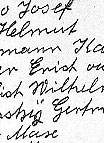 o Josef
Helmut
mann Ha
er Erich
ich Wilhelm
Gertr
Mase